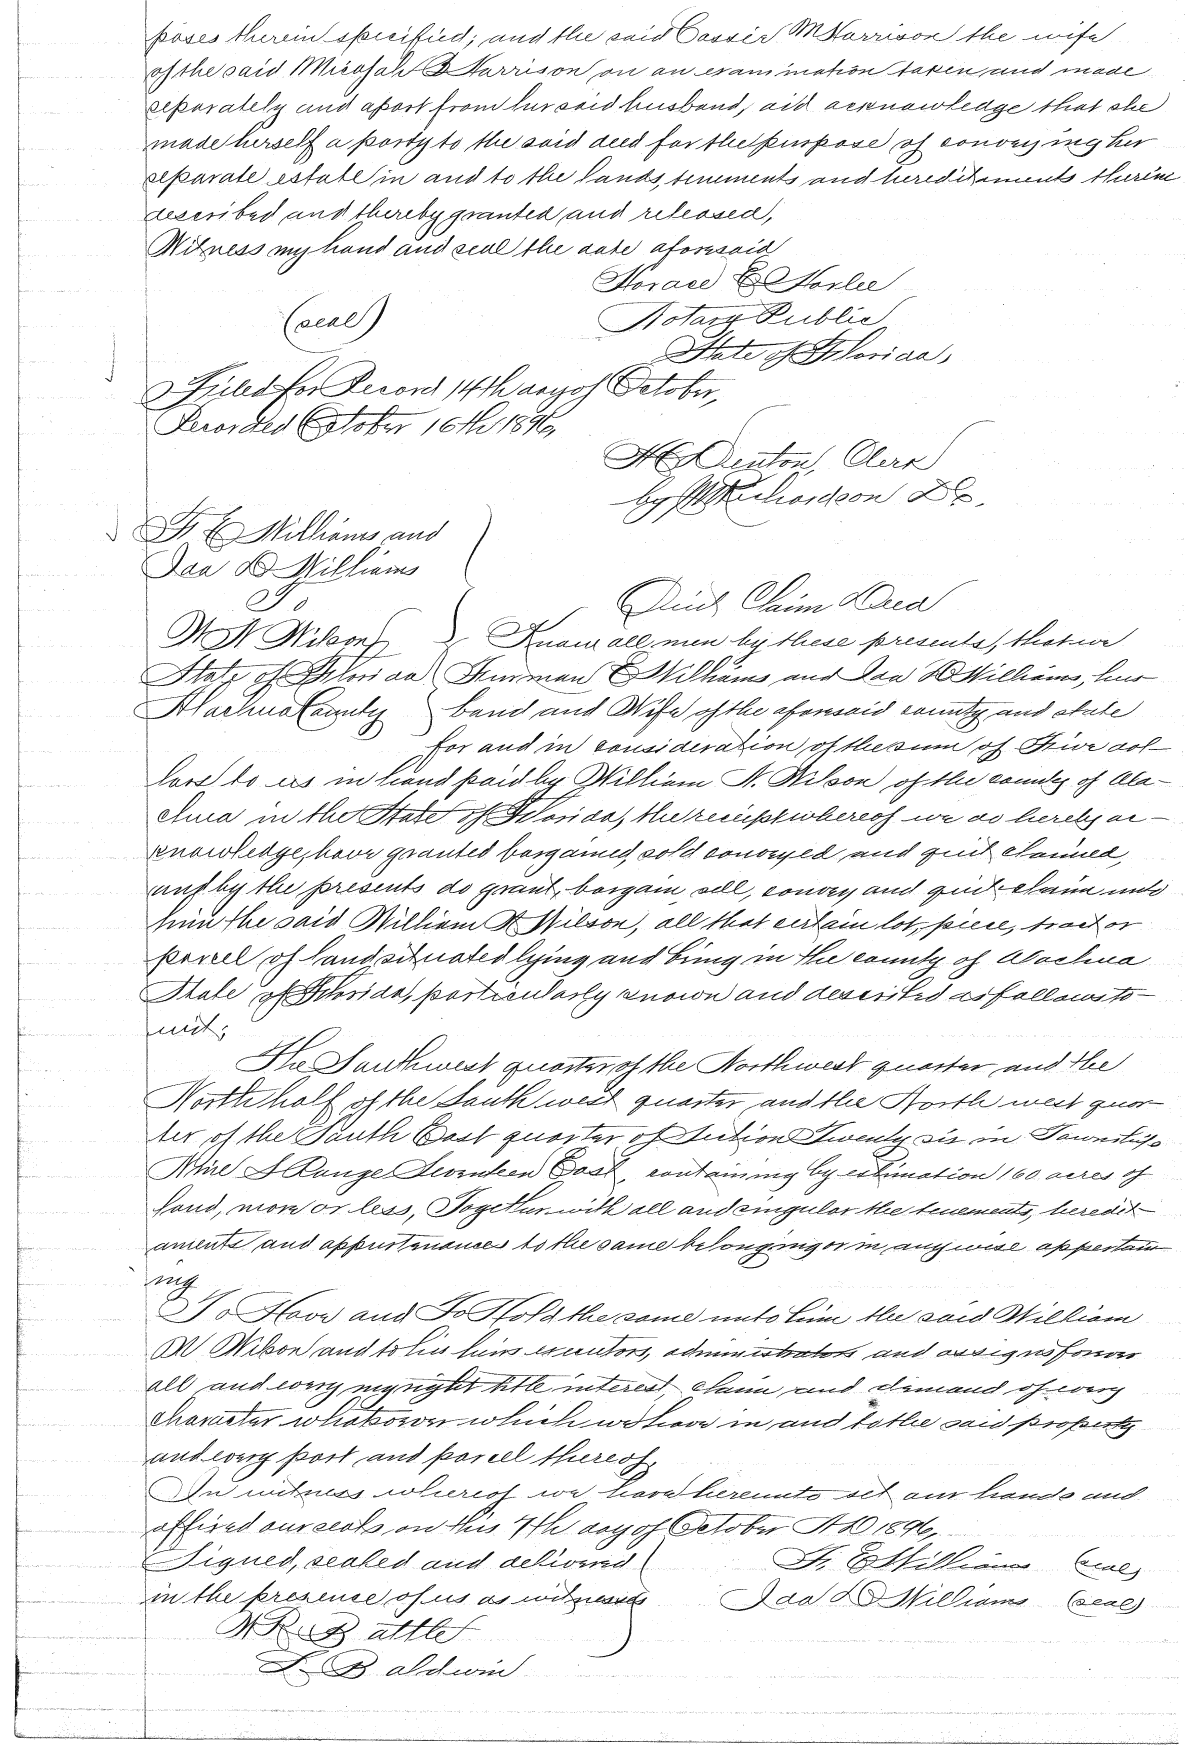 poses therein specified; and the said Cassie M Harrison the wife
of the said Micajah B Harrison on an examination taken and made
separately and apart from her said husband, did acknowledge that she
made herself a party to the said deed for the purpose of conveying her
separate estate in and to the lands, tenements and hereditaments therein
described and thereby granted and released,
Witness my hand and seal the date aforesaid
Horace E
(seal)
Notary Public
State of Florida,
Filed for Record 14th day of October,
Recorded October 16th 1896,
H C Denton, Clerk
by M Richardson D.C.
F. E Williams and
Ida D Williams
To
W N Wilson
Quit Claim Deed
Know all men by these presents, that we
State of Florida Furman E Williams and Ida D Williams, hus
Alachua County band and Wife of the aforesaid county and state
for and in consideration of the sum of Five dol-
lars to us in hand paid by William N. Wilson of the county of Ala-
chua in the State of Florida, the receipt whereof we do hereby ac-
knowledge, have granted bargained, sold conveyed and quit claimed,
and by the presents do grant, bargain, sell, convey and quit claim unto
him the said William N Wilson, all that certain lot, piece, tract or
parcel of land situated lying and being in the county of Alachua
State of Florida, particularly known and described as follows to-
wit;
The Southwest quarter of the Northwest quarter and the
North half of the South west quarter and the North west quar
ter of the South East quarter of Section Twenty six in Township
Nine S Range Seventeen East, containing by estimation 160 acres of
land, more or less, Together with all and singular the tenements, heredit-
aments and appurtenances to the same belonging or in anywise appertain
ing
To Have and To Hold the same unto him the said William
N Wilson and to his heirs executors, administrators and assigns forever
all and every my right title interest, claim and demand of every
character whatsoever which we have in and to the said property
and every part and parcel thereof,
In witness whereof we have hereunto set our hands and
affixed our seals on this 7th day of October A D 1896,
Signed, sealed and delivered F. E Williams (seal)
in the presence of us as witnesses Ida D Williams (seal)
W R Battle
Baldwin